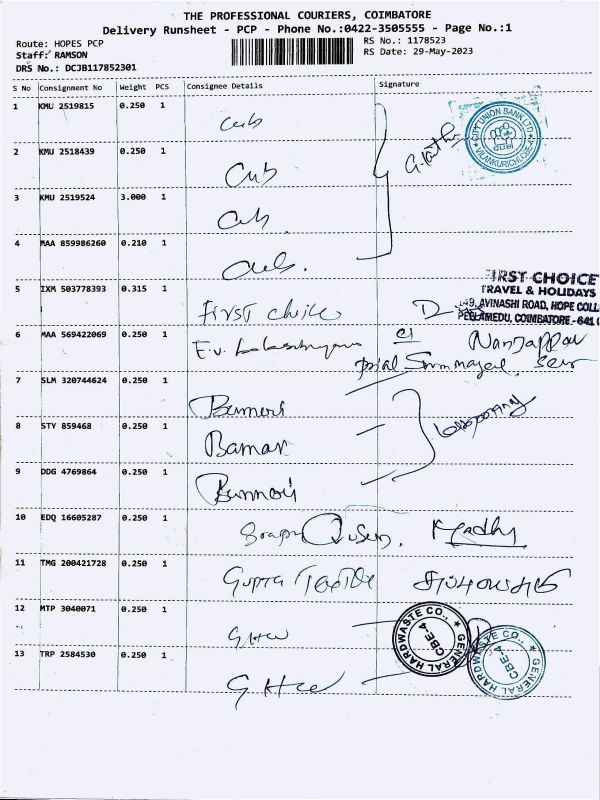 THE PROFESSIONAL COURIERS, COIMBATORE
Delivery Runsheet - PCP - Phone No.:0422-3505555 - Page No.:1
Route: HOPES PCP
Staff: RAMSON
DRS No.: DCJB117852301
RS No.: 1178523
RS Date: 29-May-2023
S No Consignment No Weight PCS Consignee Details Signature
1 KMU 2519815 0.250 1 Cub
CITY UNION BANK LTD
CUB
VILANKURICHI, CBE
2 KMU 2518439 0.250 1 Cub
3 KMU 2519524 3.000 1 Cub
4 MAA 859986260 0.210 1 Cub.
5 IXM 503778393 0.315 1 First choice
FIRST CHOICE
TRAVEL & HOLIDAYS
AVINASHI ROAD, HOPE COLL
PEELAMEDU, COIMBATORE - 641
6 MAA 569422069 0.250 1 E.v.
7 SLM 320744624 0.250 1
8 STY 859468 0.250 1
9 DDG 4769864 0.250 1
10 EDQ 16605287 0.250 1 Madhu
11 TMG 200421728 0.250 1 Gupta
12 MTP 3040071 0.250 1 GHW
GENERAL HARDWASTE CO.,
CBE-4
13 TRP 2584530 0.250 1 GHW
GENERAL HARDWASTE CO.,
CBE-4